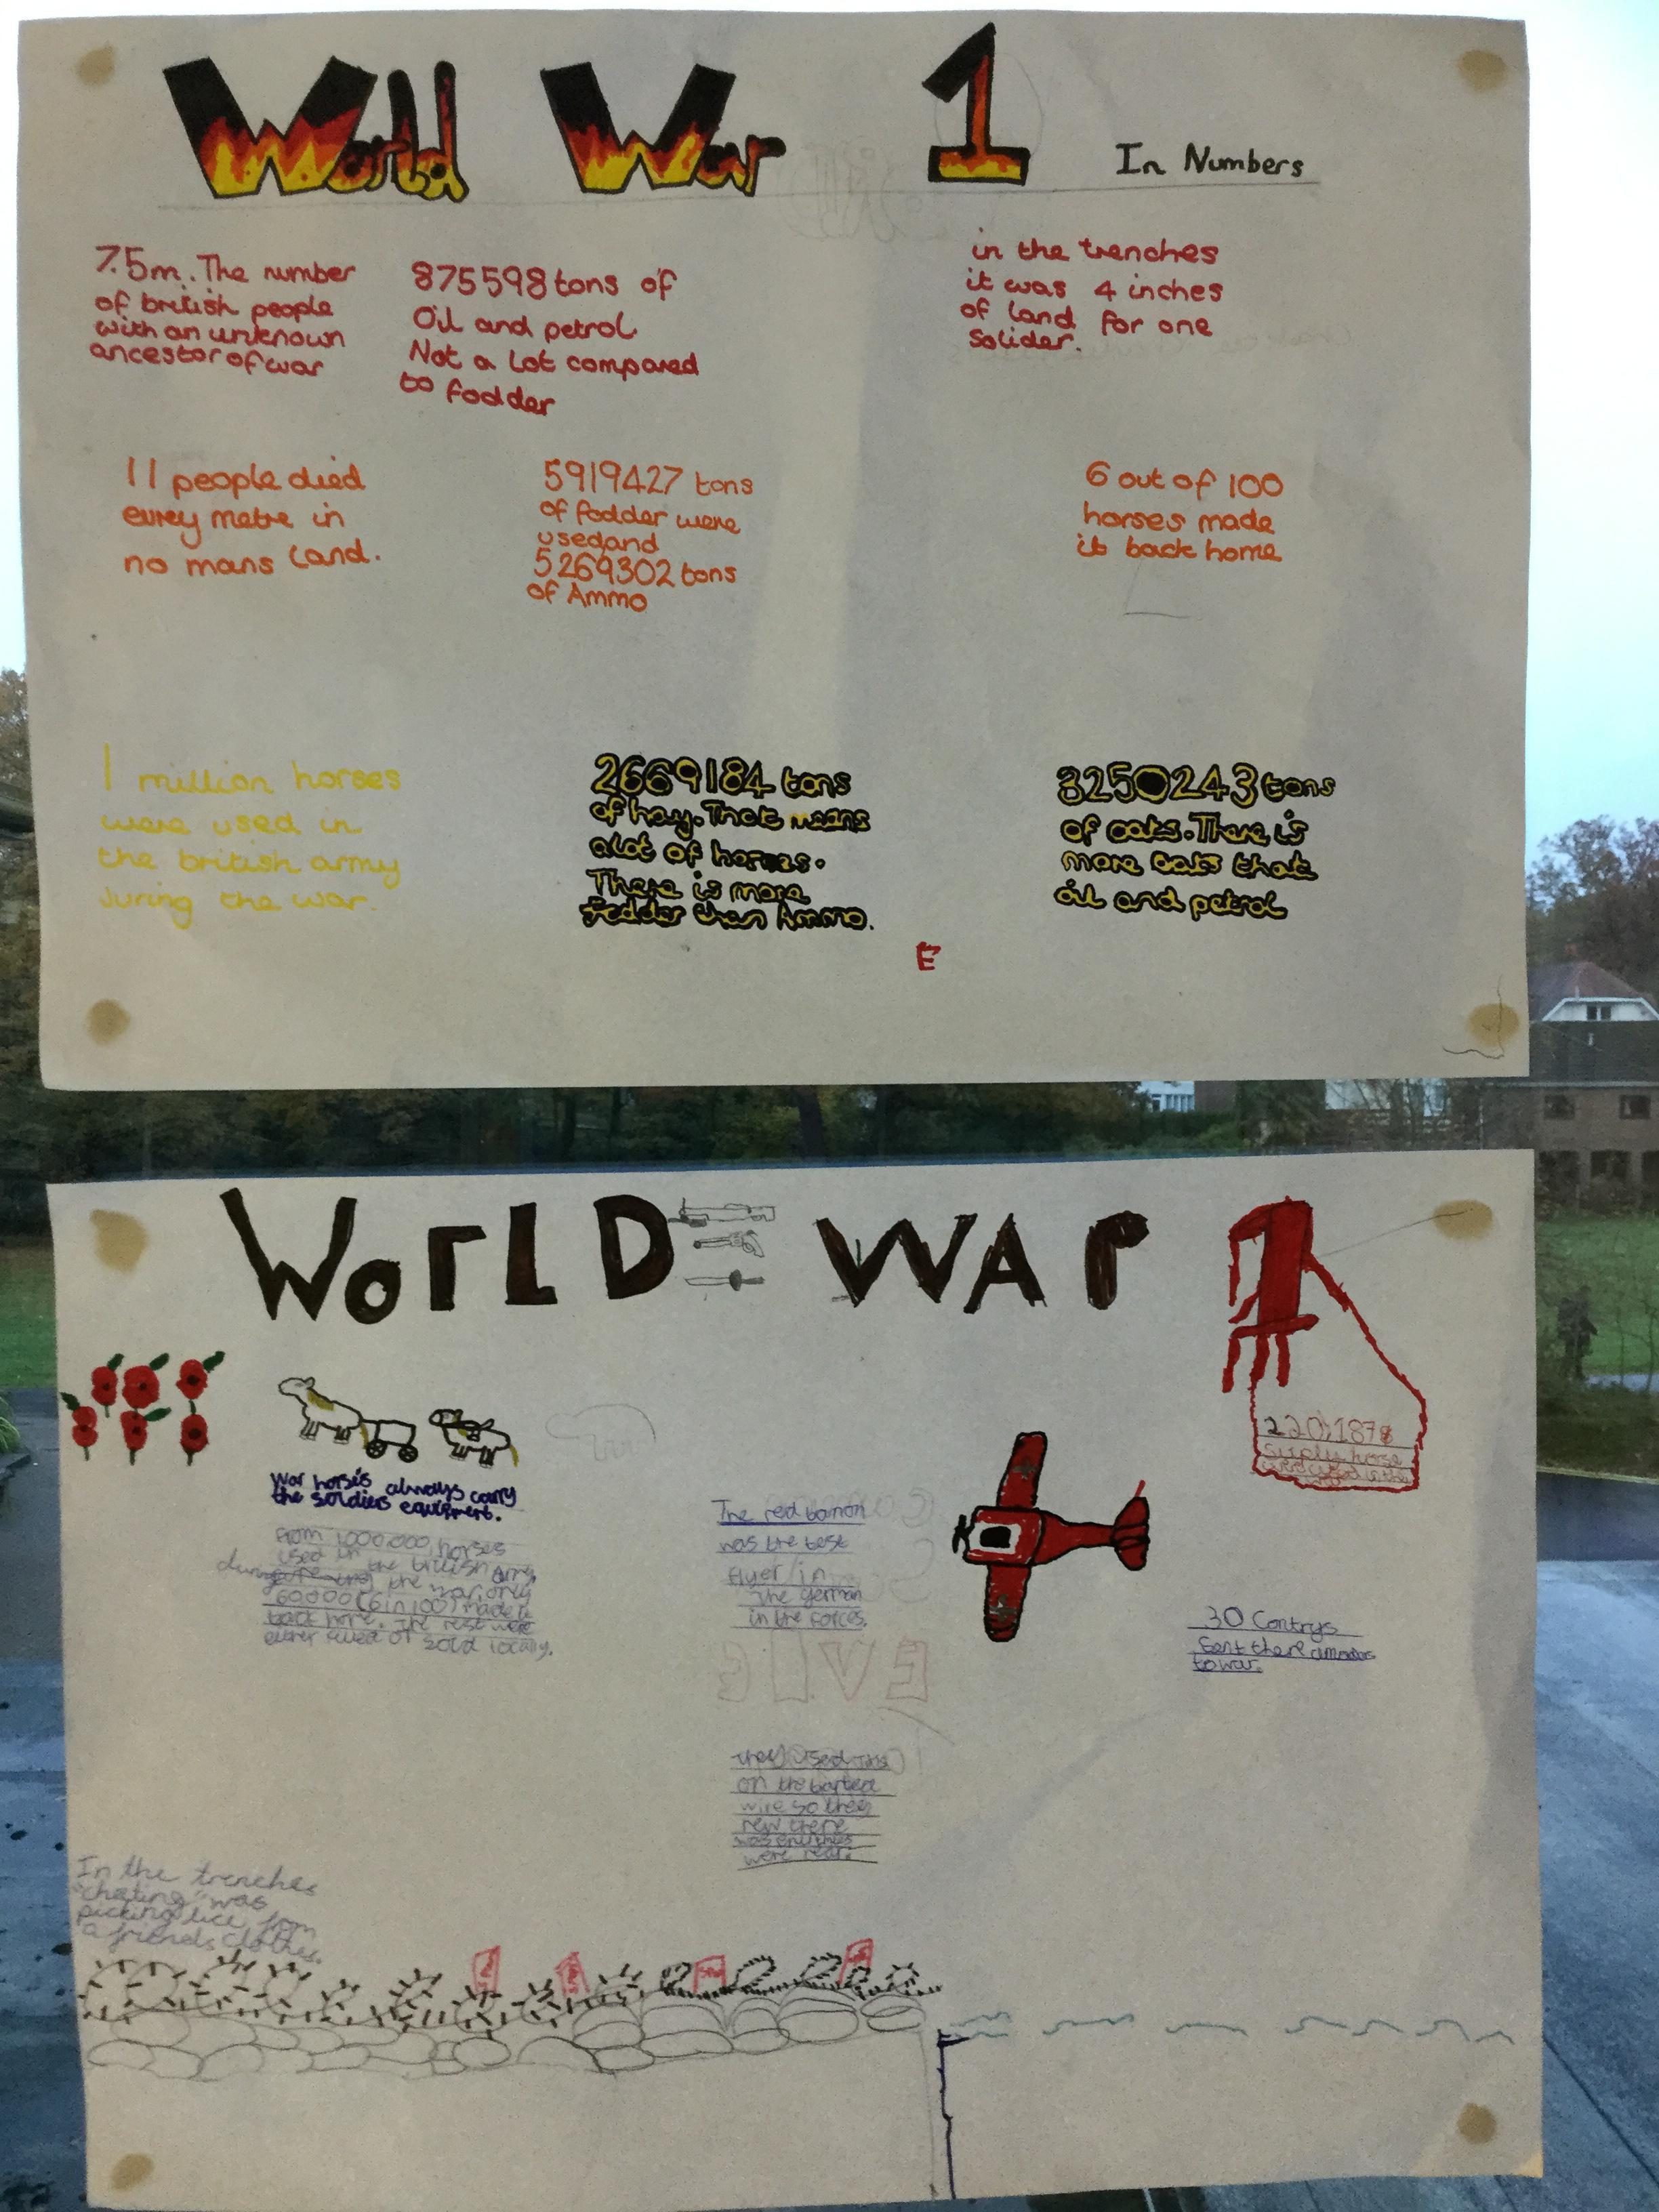 World War 1 In Numbers
7.5m. The number
of british people
with an unknown
ancestor of war
875598 tons of
Oil and petrol
Not a lot compared
to fodder
in the trenches
it was 4 inches
of land for one
solider.
11 people died
evrey metre in
no mans land.
5919427 tons
of fodder were
used and
5269302 tons
of Ammo
6 out of 100
horses made
it back home
1 million horses
were used in
the british army
during the war.
2669184 tons
of hay. That means
a lot of horses.
There is more
fodder than Ammo.
3250243 tons
of oats. There is
more oats that
oil and petrol
E
WorLD WAr 1
War horses always carry
the soldiers equipment.
From 1000000 horses
used in the british army
during the war, only
60.000 (6 in 100) made it
back home. The rest were
either killed or sold locally.
The red barron
was the best
flyer in
the german
in the forces.
suply horse
30 Contrys
sent there
to war.
They used tins
on the barbed
wire so they
new there
were near.
In the trenches
"chatting" was
picking lice from
a friends clothes.